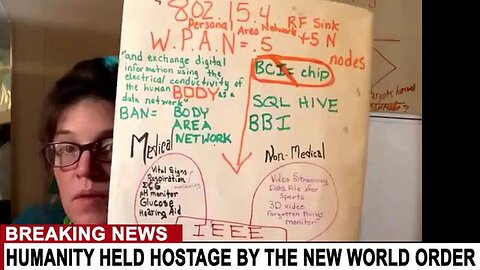 802.15.4
RF Sink
Personal Area Network
+5 N
W.P.A.N = .5
nodes
"and exchange digital
information using the
electrical conductivity of
the human BODY as a
data network"
BCI = chip
SQL HIVE
BAN = BODY
AREA
NETWORK
BBI
Medical
Non-Medical
Vital Signs
Respiration
monitoring
ECG
pH monitor
Glucose
Hearing Aid
Video Streaming
Data File xfer
Sports
3D video
Forgotten things
monitor
IEEE
BREAKING NEWS
HUMANITY HELD HOSTAGE BY THE NEW WORLD ORDER